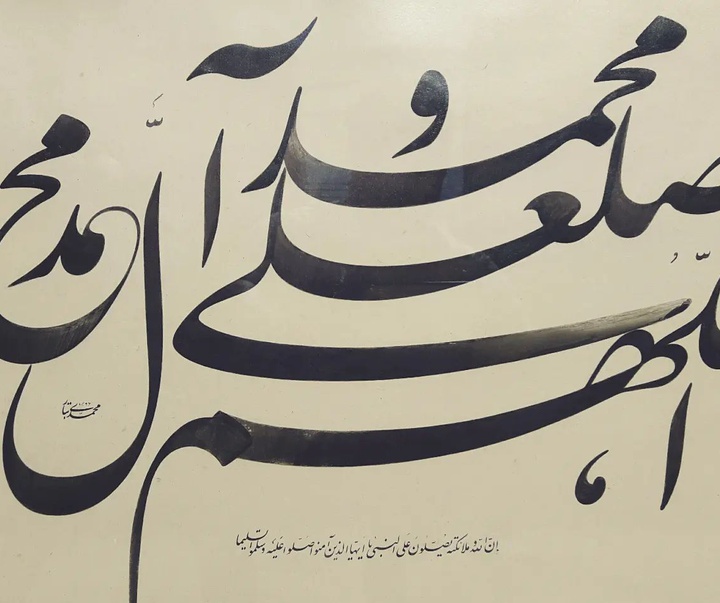 اللّهم صل علی محمد و آل محمد
إنّ اللّه و ملائکته یصلّون علی النبی یا ایها الذین آمنوا صلوا علیه و سلموا تسلیما